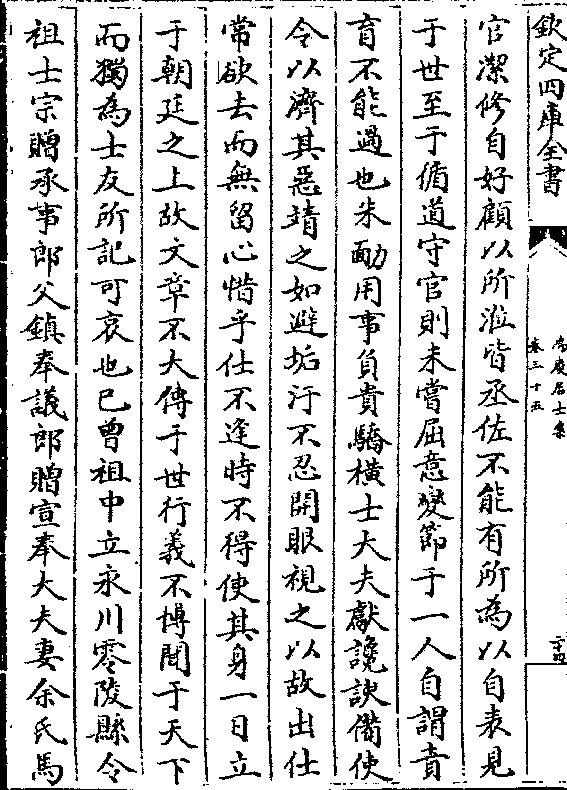 欽定四庫全書
鴻慶居士集
卷三十五
官潔修自好顧以所涖皆丞佐不能有所為以自表見
于世至于循道守官則未嘗屈意變節于一人自謂責
育不能過也朱勔用事負貴驕橫士大夫獻讒諛備使
令以濟其惡靖之如避垢汙不忍開眼視之以故出仕
常欲去而無留心惜乎仕不逢時不得使其身一日立
于朝廷之上故文章不大傳于世行義不博聞于天下
而獨為士友所記可哀也已曾祖中立永川零陵縣令
祖士宗贈承事郎父鎮奉議郎贈宣奉大夫妻余氏馬